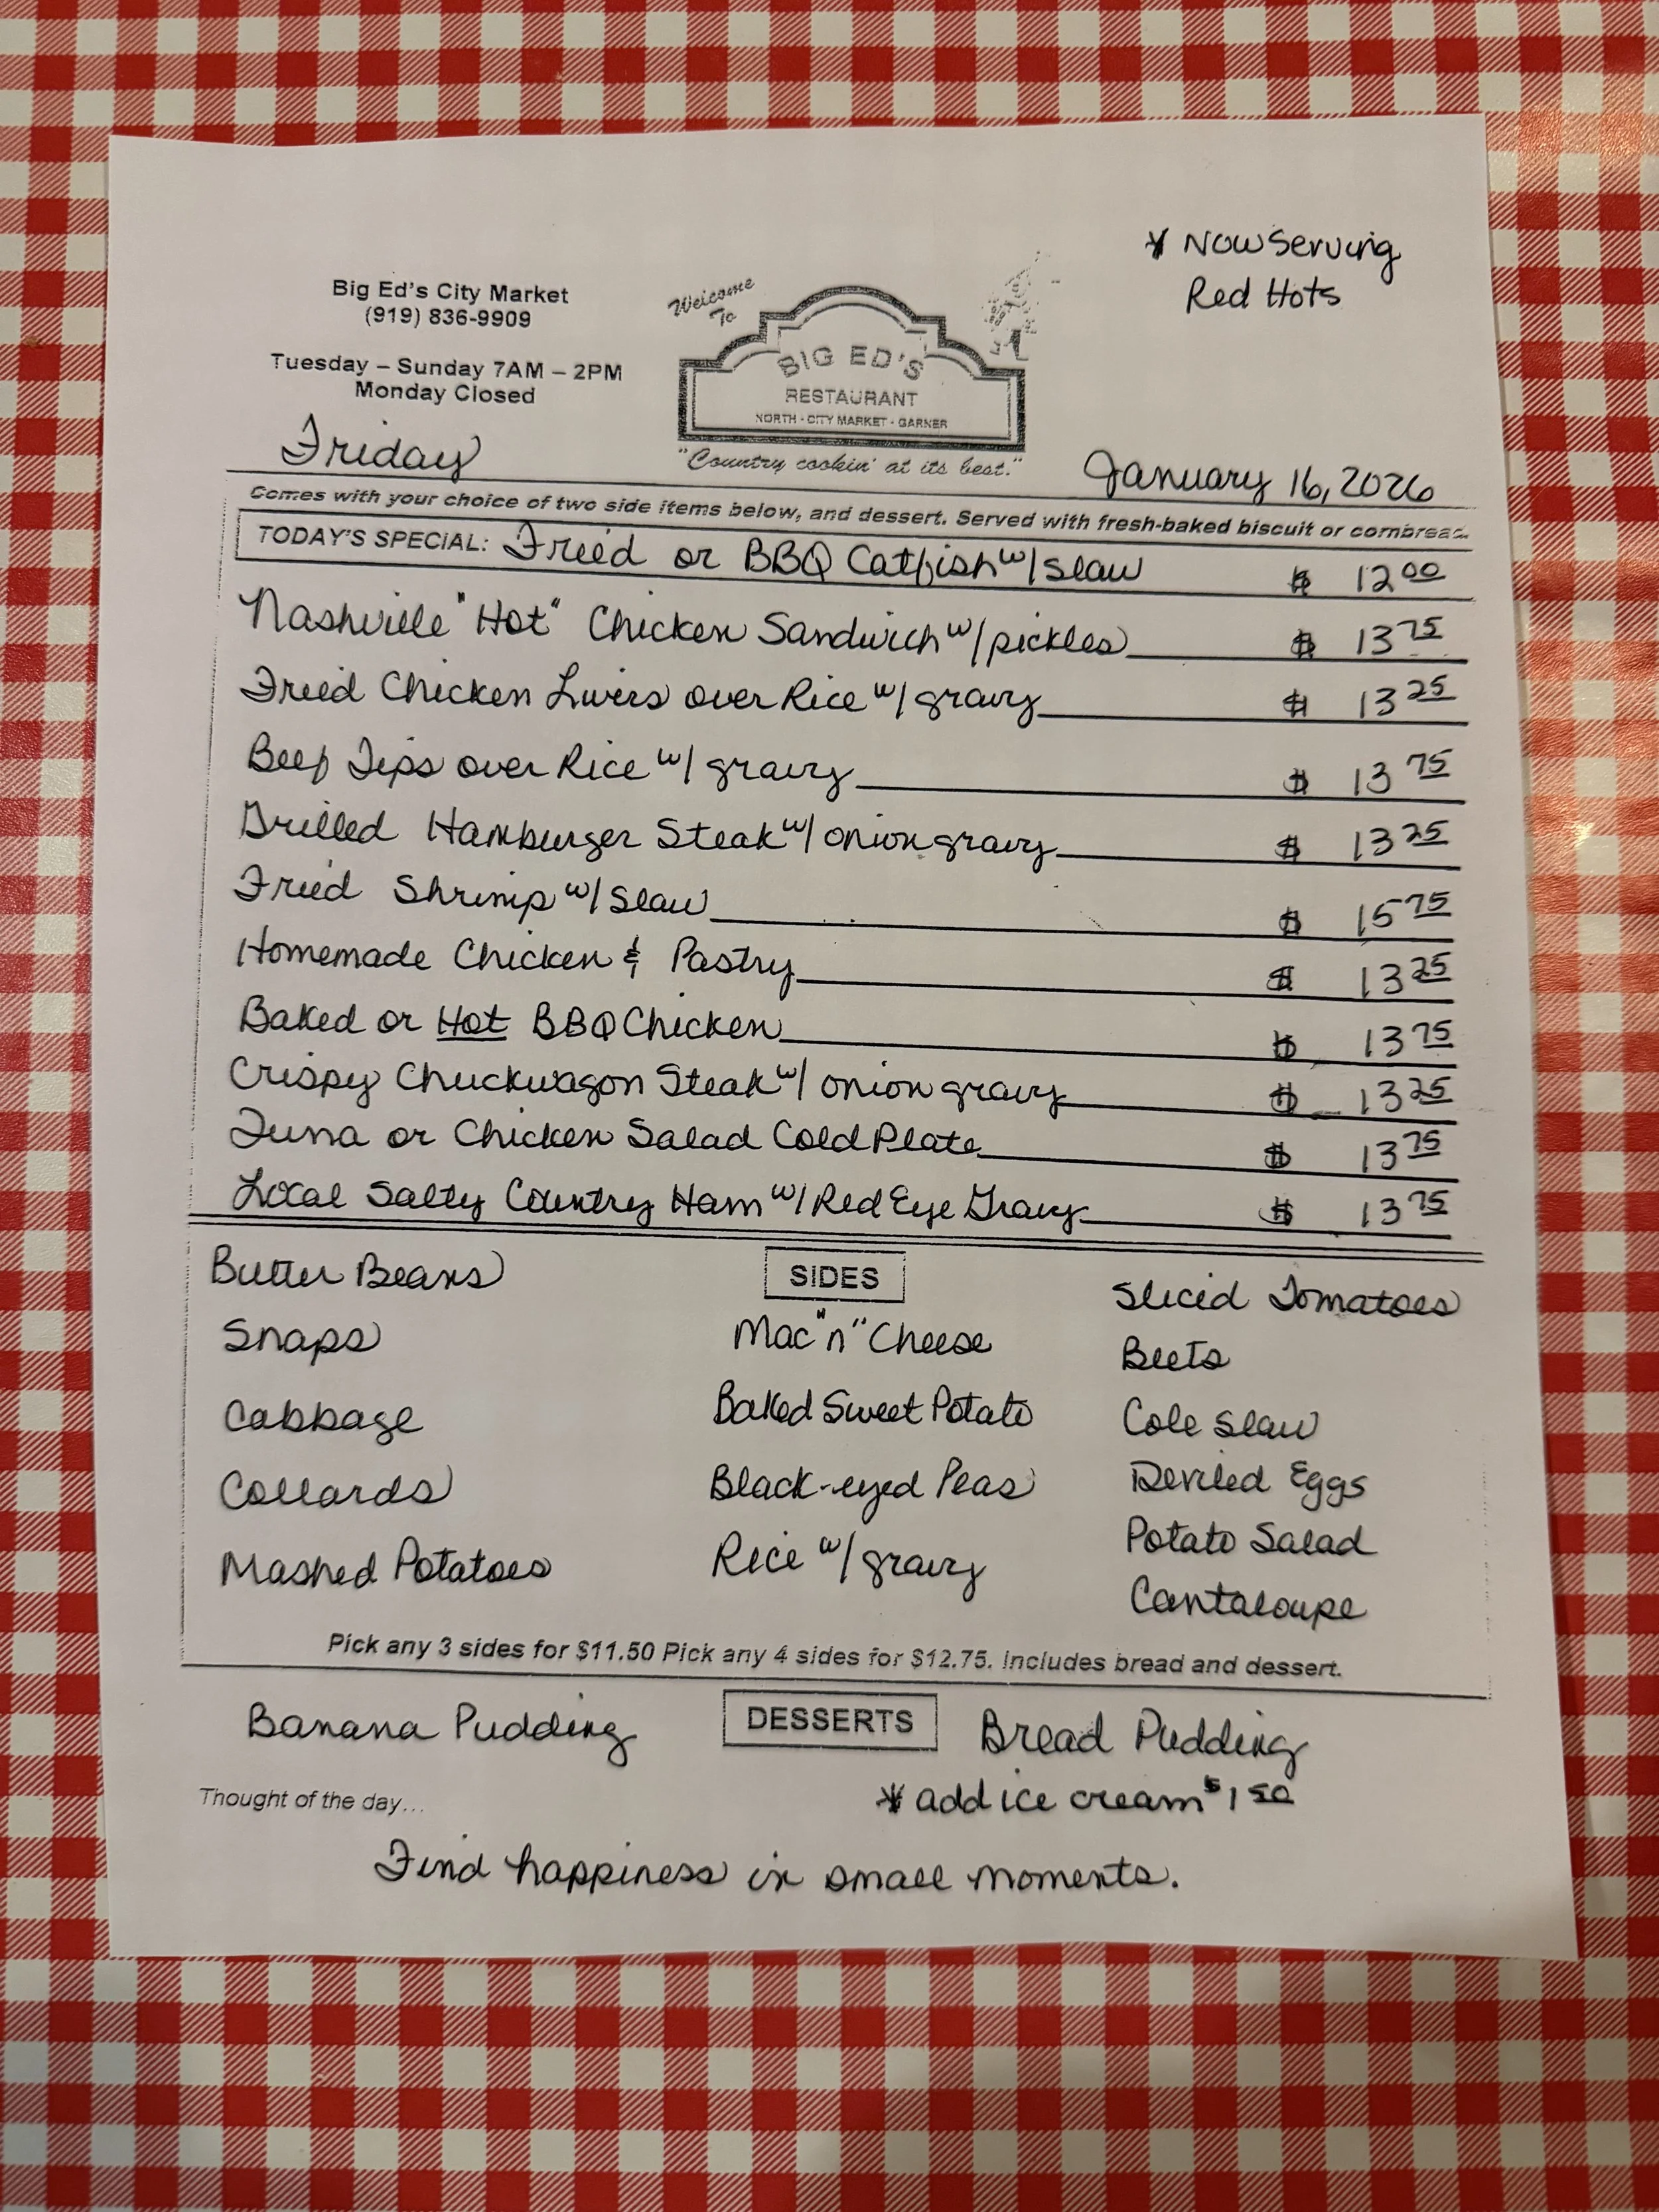 * Now Serving
Red Hots
Big Ed's City Market
(919) 836-9909
Tuesday – Sunday 7AM – 2PM
Monday Closed
Welcome
To
BIG ED'S
RESTAURANT
NORTH - CITY MARKET - GARNER
"Country cookin' at its best."
Friday
January 16, 2026
Comes with your choice of two side items below, and dessert. Served with fresh-baked biscuit or cornbread.
TODAY'S SPECIAL: Fried or BBQ Catfish w/ slaw $ 12 00
Nashville "Hot" Chicken Sandwich w/ pickles $ 13 75
Fried Chicken Livers over Rice w/ gravy $ 13 25
Beef Tips over Rice w/ gravy $ 13 75
Grilled Hamburger Steak w/ onion gravy $ 13 25
Fried Shrimp w/ Slaw $ 15 75
Homemade Chicken & Pastry $ 13 25
Baked or Hot BBQ Chicken $ 13 75
Crispy Chuckwagon Steak w/ onion gravy $ 13 25
Tuna or Chicken Salad Cold Plate $ 13 75
Local Salty Country Ham w/ Red Eye Gravy $ 13 75
SIDES
Butter Beans
Snaps
Cabbage
Collards
Mashed Potatoes
Mac "n" Cheese
Baked Sweet Potato
Black-eyed Peas
Rice w/ gravy
Sliced Tomatoes
Beets
Cole Slaw
Deviled Eggs
Potato Salad
Cantaloupe
Pick any 3 sides for $11.50 Pick any 4 sides for $12.75. Includes bread and dessert.
DESSERTS
Banana Pudding
Bread Pudding
* add ice cream $1 50
Thought of the day...
Find happiness in small moments.